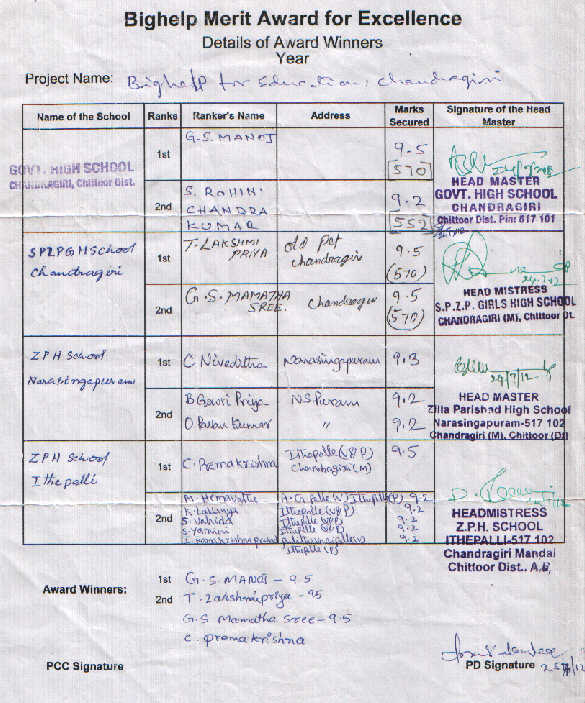 Bighelp Merit Award for Excellence
Details of Award Winners
Year
Project Name: Bighelp for Education, Chandragiri
Name of the School Ranks Ranker's Name Address Marks Secured Signature of the Head Master
GOVT. HIGH SCHOOL
CHANDRAGIRI, Chittoor Dist.
1st G.S. MANOJ 9.5
570
2nd S. ROHINI
CHANDRA
KUMAR
9.2
552
HEAD MASTER
GOVT. HIGH SCHOOL
CHANDRAGIRI
Chittoor Dist. Pin: 517 101
SPZPGH School
Chandragiri
1st T. LAKSHMI
PRIYA
Old Pet
Chandragiri
9.5
(570)
2nd G.S. MAMATHA
SREE.
Chandragiri
9.5
(570)
HEAD MISTRESS
S.P.Z.P. GIRLS HIGH SCHOOL
CHANDRAGIRI (M), Chittoor Dt.
ZPH School
Narasingapuram
1st C Niveditha Narasingapuram 9.3
2nd B Gowri Priya NS Puram 9.2
O Pavan Kumar " 9.2
29/7/12
HEAD MASTER
Zilla Parishad High School
Narasingapuram-517 102
Chandragiri (M), Chittoor (Dt)
ZPH School
Ithepalli
1st C. Premakrishna Ithepalle (V&P)
Chandragiri (M)
9.5
2nd M. Hemavathi Ithepalle (P) 9.2
K. Lavanya Ithepalle (V&P) 9.2
S. Vahida Ithepalle (V&P) 9.2
S. Yamini Ithepalle (V&P) 9.2
9.2
Ithepalle (P)
HEADMISTRESS
Z.P.H. SCHOOL
ITHEPALLI-517 102
Chandragiri Mandal
Chittoor Dist., A.P.
Award Winners:
1st G.S. MANOJ - 9.5
2nd T. Lakshmi priya - 95
G.S Mamatha Sree - 9.5
C. Premakrishna
PCC Signature
PD Signature